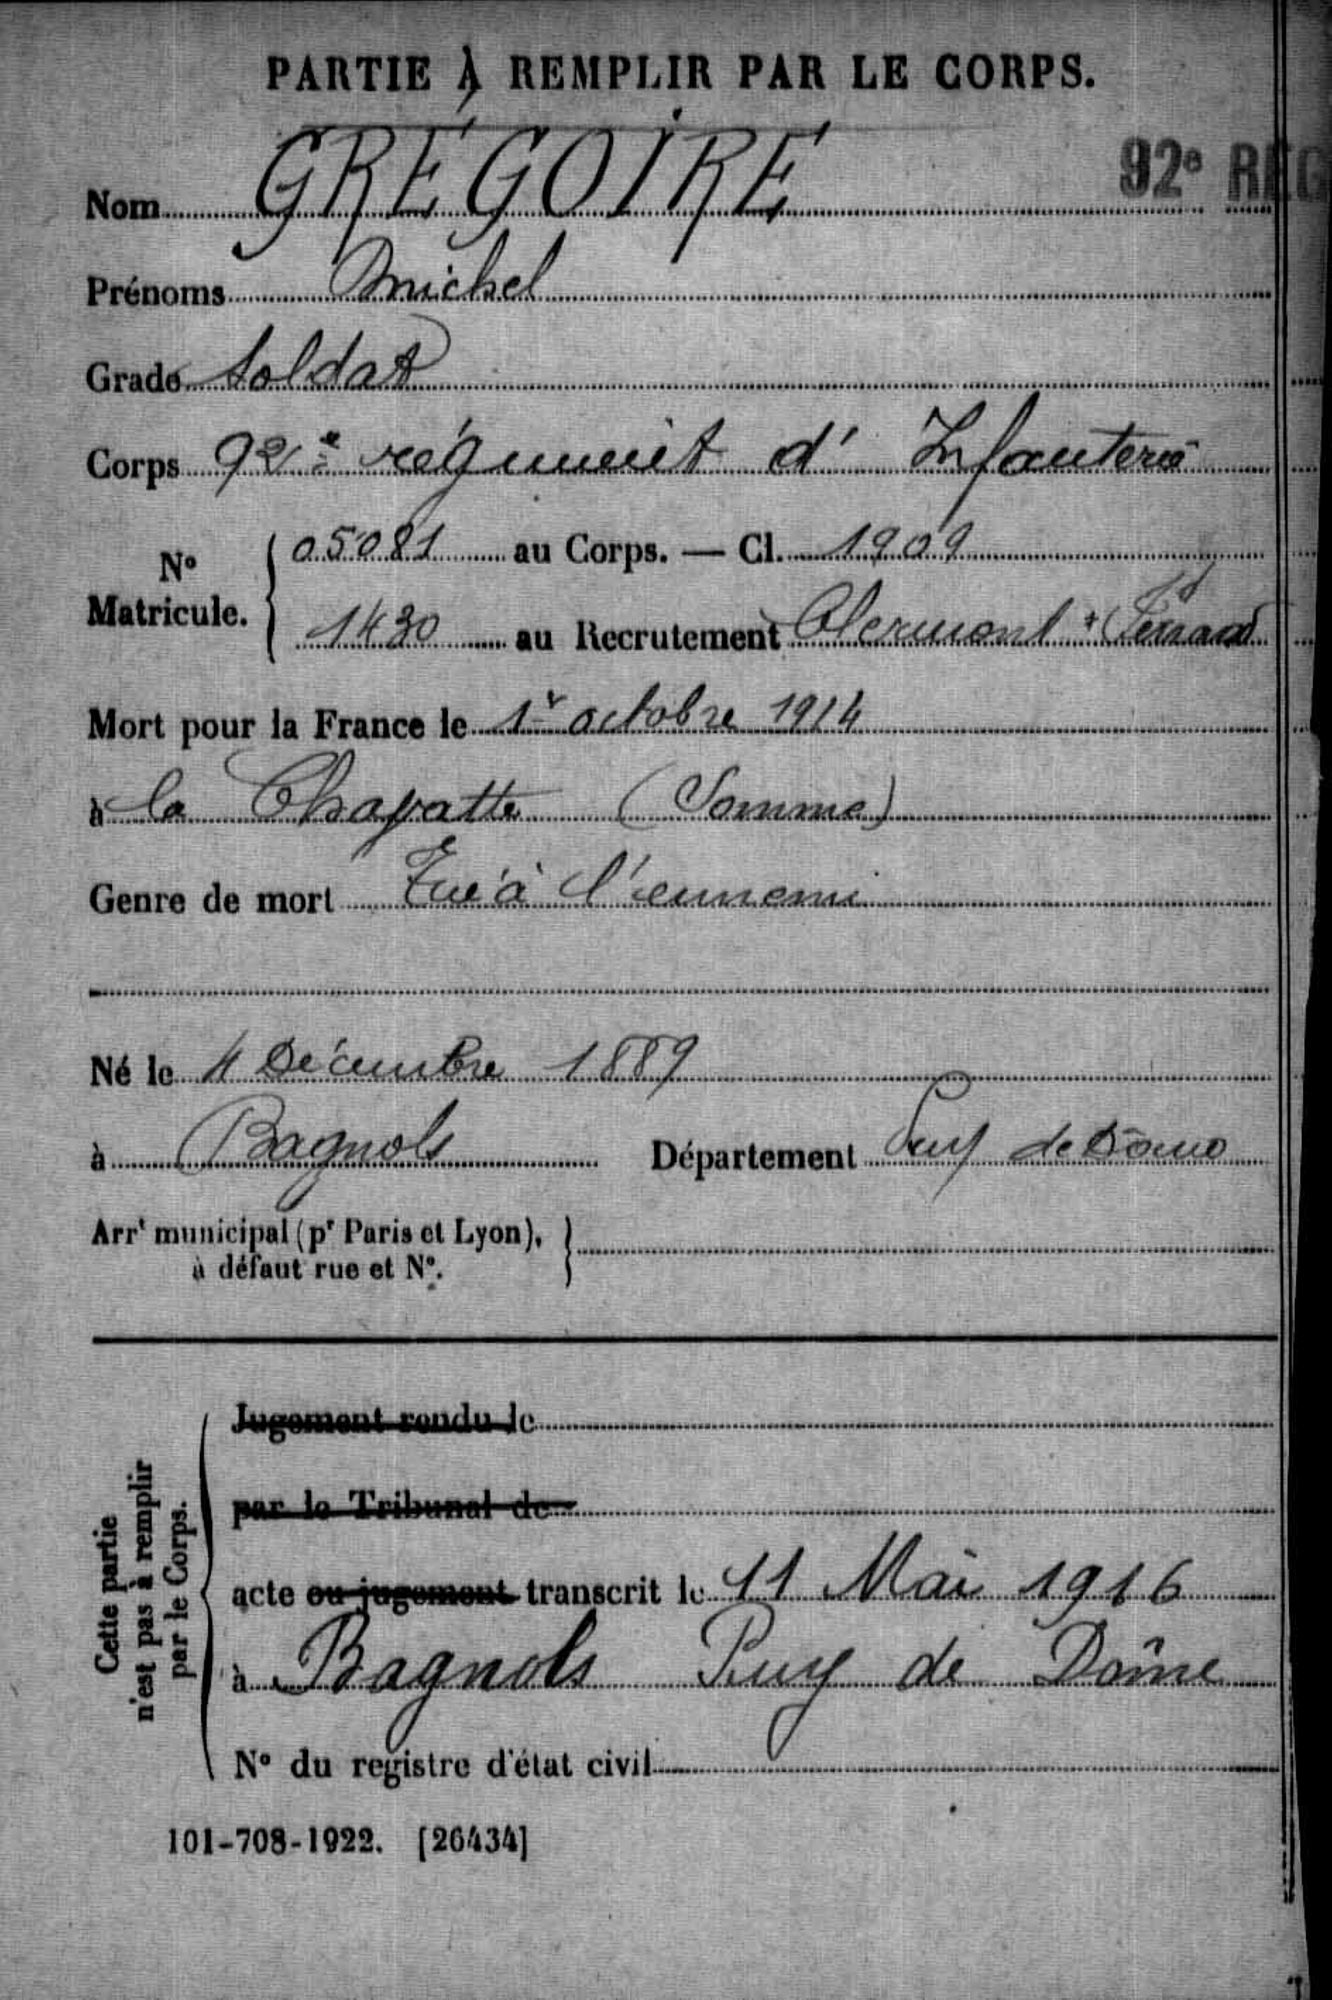 PARTIE À REMPLIR PAR LE CORPS.
92e REG
Nom GRÉGOIRE
Prénoms Michel
Grade Soldat
Corps 92e régiment d' Infanterie
No Matricule. 05081 au Corps. — Cl. 1909
1430 au Recrutement Clermont Ferrand
Mort pour la France le 1r octobre 1914
à la Chavatte (Somme)
Genre de mort Tué à l'ennemi
Né le 4 Décembre 1889
à Bagnols Département Puy de Dôme
Arrt municipal (pr Paris et Lyon),
à défaut rue et No.
Cette partie
n'est pas à remplir
par le Corps.
Jugement rendu le
par le Tribunal de
acte ou jugement transcrit le 11 Mai 1916
à Bagnols Puy de Dôme
No du registre d'état civil
101-708-1922. [26434]